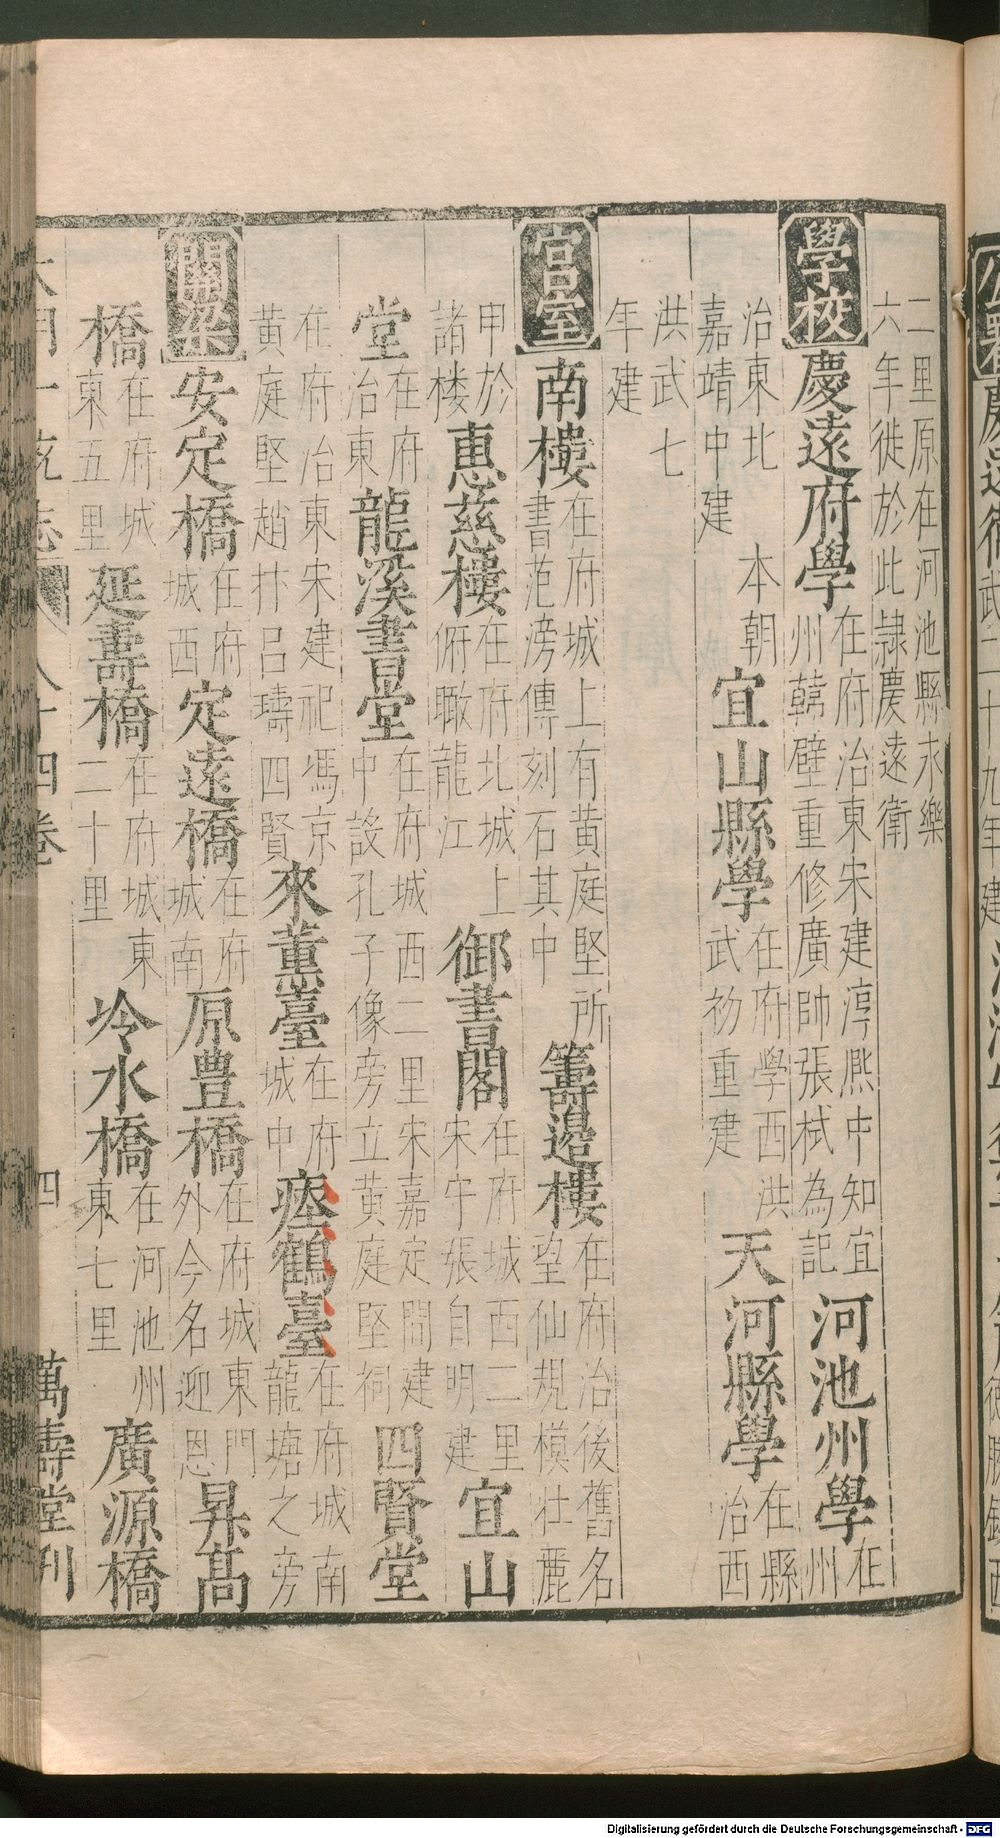 二里原在河池縣永樂
六年徙於此隸慶遠衛
學校 慶遠府學 在府治東宋建淳熈中知宜州韓壁重修廣帥張栻為記 河池州學 在州
治東北嘉靖中建 宜山縣學 在府學西洪武初重建 天河縣學 在縣治西
本朝洪武七年建
宫室 南樓 在府城上有黃庭堅所書范滂傳刻石其中 籌邊樓 在府治後舊名望仙規模壯麗
甲於諸楼 惠慈樓 在府北城上俯瞰龍江 御書閣 在府城西二里宋守張自明建 宜山
堂 在府治東 龍溪書堂 在府城西二里宋嘉定間建中設孔子像旁立黄庭堅祠 四賢堂
在府治東宋建祀馮京黃庭堅趙抃呂璹四賢 來薰臺 在府城中 瘞鶴臺 在府城南龍塘之旁
關梁 安定橋 在府城西 定遠橋 在府城南 原豊橋 在府城東門外今名迎恩 昇髙
橋 在府城東五里 延壽橋 在府城東二十里 坽水橋 在河池州東七里 廣源橋
大明一統志 八十四卷 四 萬壽堂刊
Digitalisierung gefördert durch die Deutsche Forschungsgemeinschaft - DFG